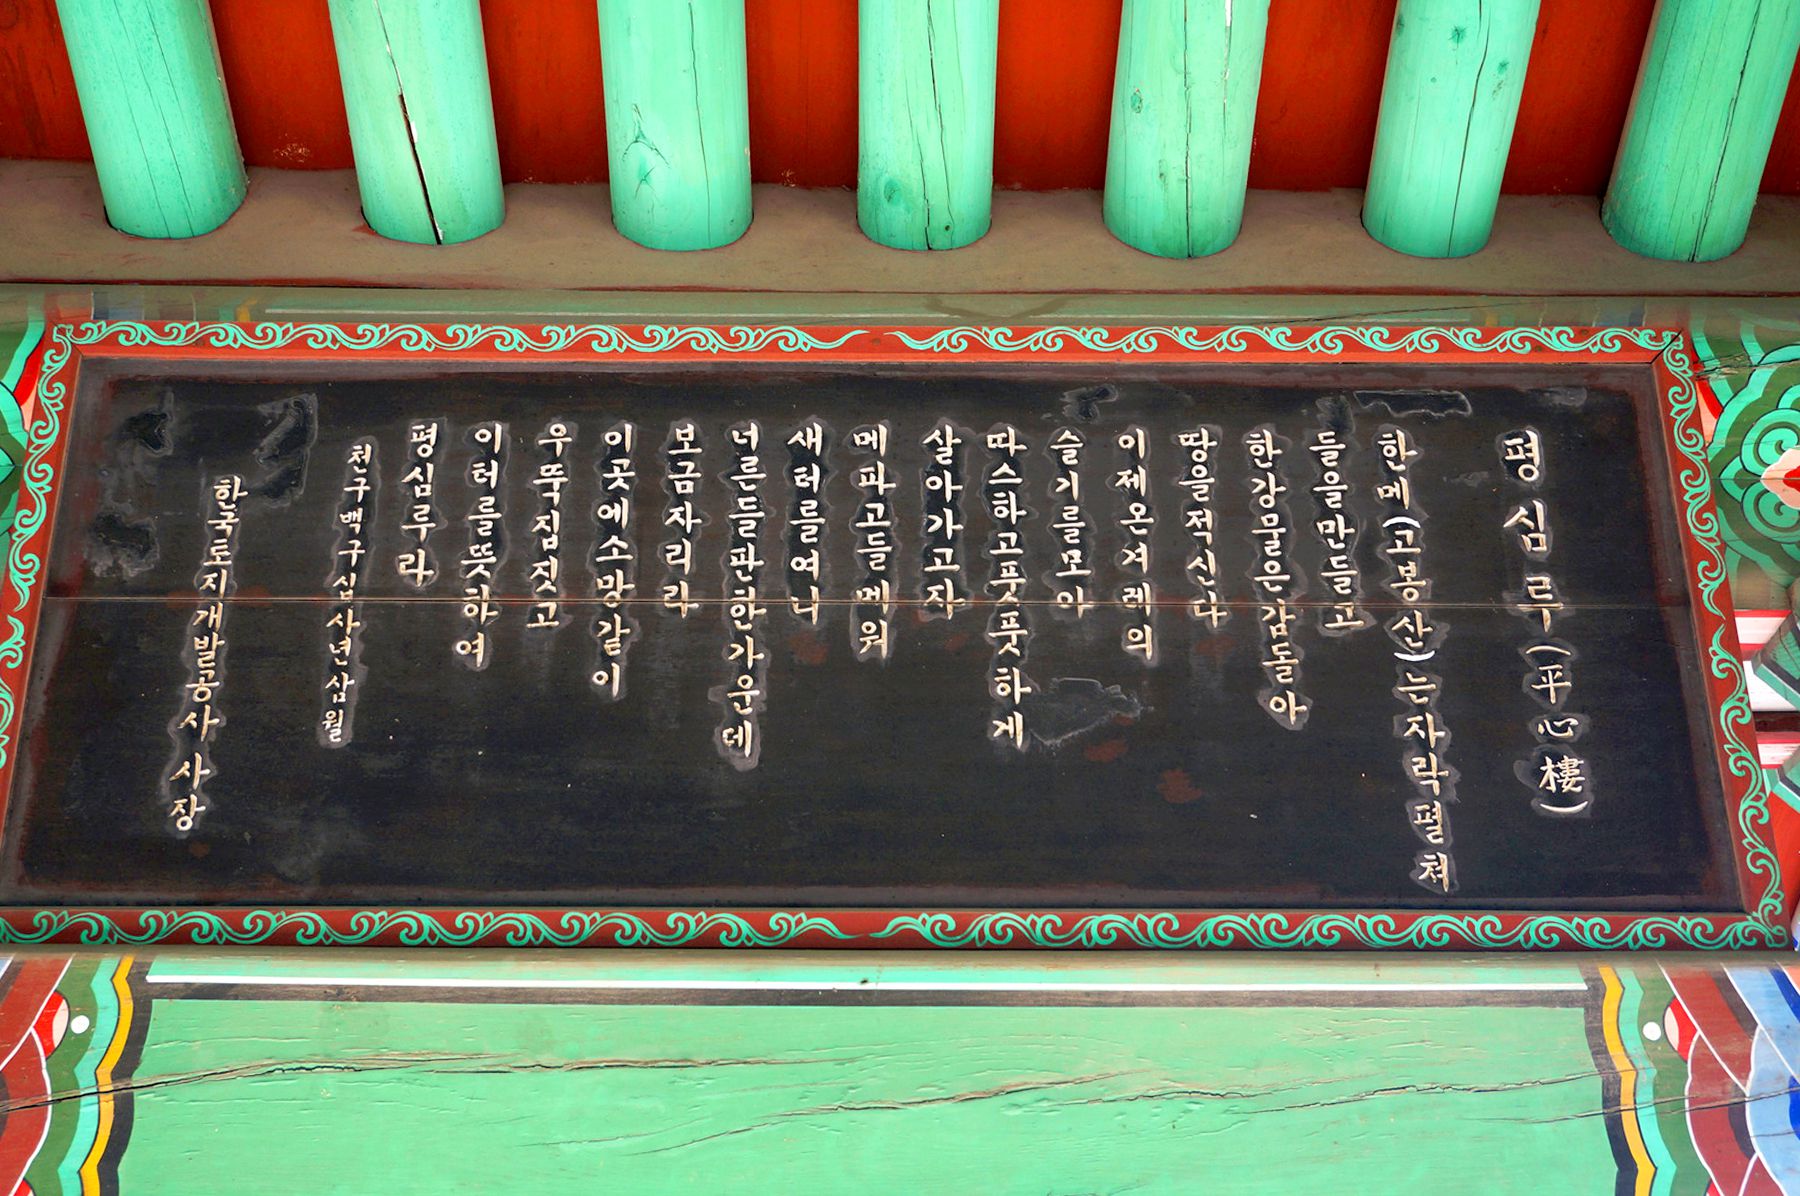 평심루(平心樓)
한메(고봉산)는자락펼쳐
들을만들고
한강물은감돌아
땅을적신다
이제온겨레의
슬기를모아
따스하고풋풋하게
살아가고자
메파고들메워
새터를여니
너른들판한가운데
보금자리라
이곳에소망같이
우뚝짐짓고
이터를뜻하여
평심루라
천구백구십사년삼월
한국토지개발공사 사장